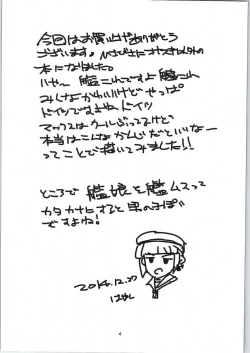 今回はお買い上げありがとう
ございます。ひさびさにオリジナル以外の
本になりました。
いやー 艦これですよ艦これ
みんなかわいいけどやっぱ
ドイツですよね、ドイツ
マックスはクールぶってるけど
本当はこんなかんじだといいなー
ってことで描いてみました!!
ところで艦娘を艦ムスって
カタカナにすると男のっぽい
ですよね!
2014.12.27
はやし